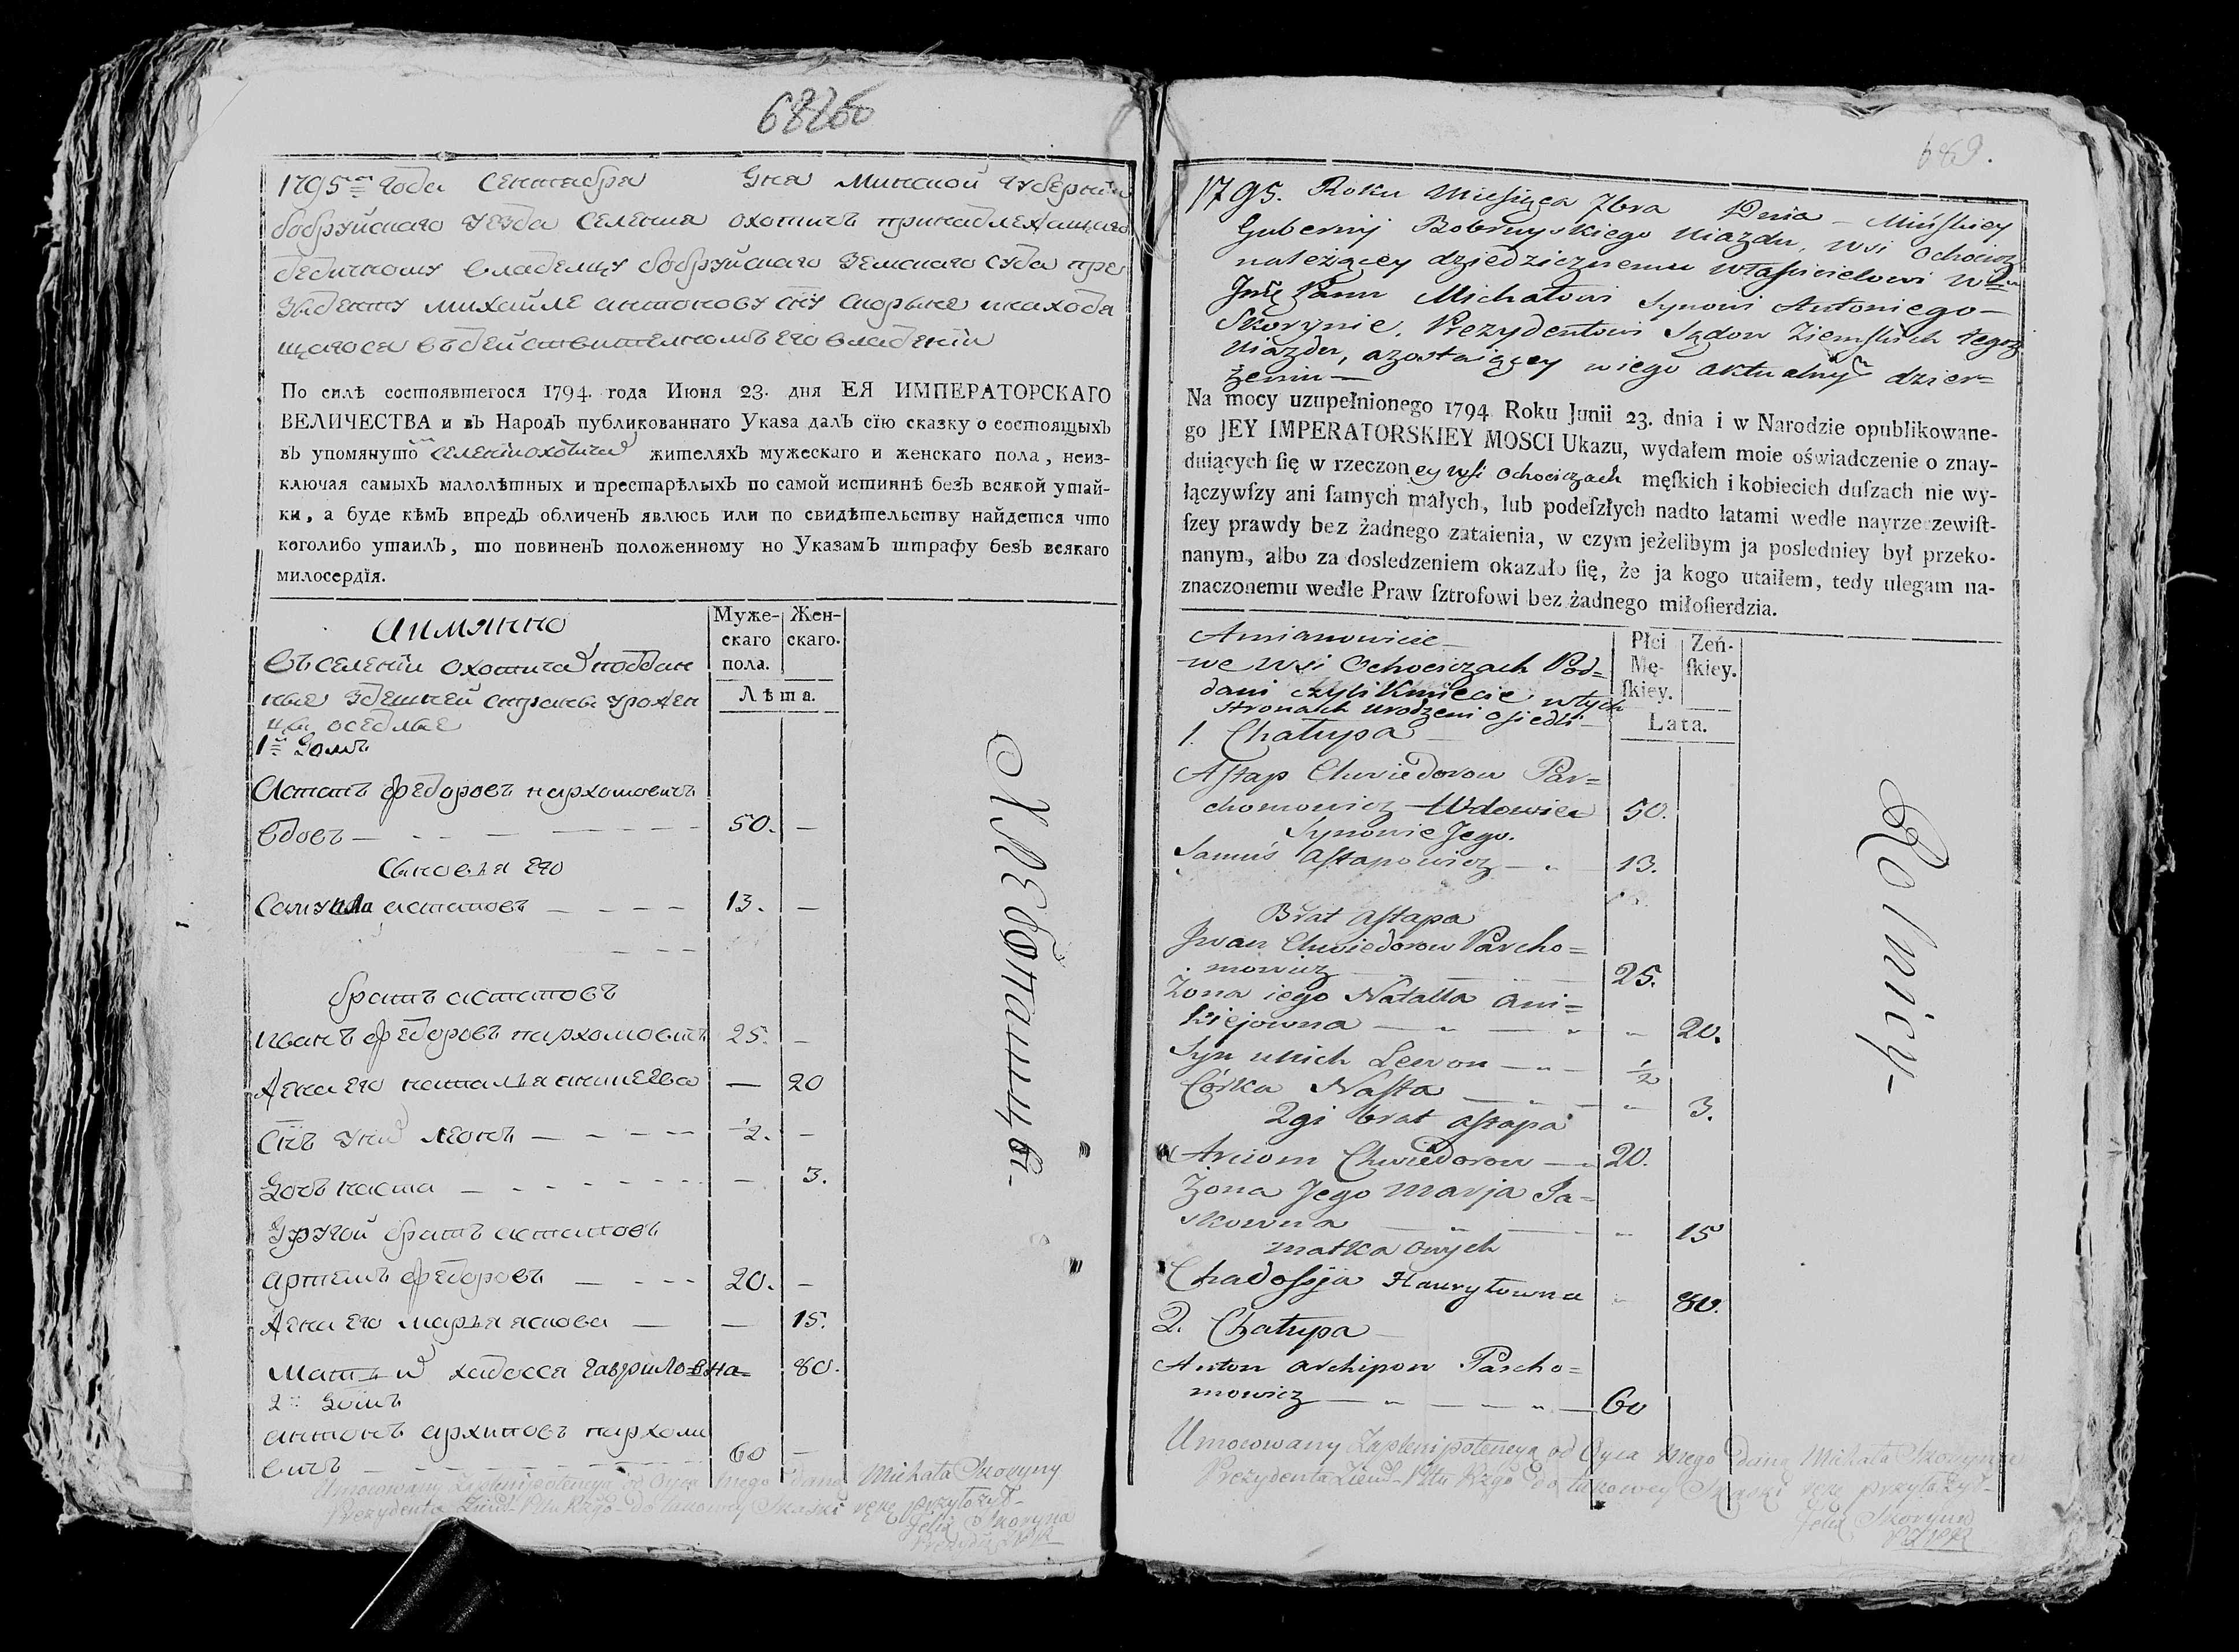 1795го года Сентября дня Минской губернии
бобруйскаго уезда селения охотичъ принадлежащаго
дедичному владельцу бобруйскаго земскаго суда пре
зыденту михайле антонову сну скорыне инаходя
щагося въдействителномъ его владении
По силѣ состоявшегося 1794 года Июня 23. дня ЕЯ ИМПЕРАТОРСКАГО
ВЕЛИЧЕСТВА и въ Народъ публикованнаго Указа далъ сїю сказку о состоящыхъ
въ упомянутомъ селениїохотичах жителяхъ мужескаго и женскаго пола, неиз-
ключая самыхъ малолѣтныхъ и престарѣлыхъ по самой истиннѣ безъ всякой утай-
ки, а буде кѣмъ впредъ обличенъ явлюсь или по свидѣтельству найдется что
коголибо утаилъ, то повиненъ положенному по Указамъ штрафу безъ всякаго
милосердїя.
Муже-
скаго
пола.
Жен-
скаго.
Лѣта.
Аимянно
въселении охотичах поддан
ные здешней страны урожен
цы оседлые
1й Домъ
Астапъ федоровъ пархомовичъ
вдовъ — 50. —
Сыновья его
Самуила астаповъ — 13. —
братъ астаповъ
иванъ федоровъ пархомовичъ 25. —
Жена его наталья аникеева — 20
Снъ у них леонъ — ½. —
Дочь наста — 3.
Другой братъ астаповъ
артемъ федоровъ — 20. —
Жена его марья яскова — 15.
Мать их хадосся гаврило-вна 80.
2й Домъ
антонъ архиповъ пархомо
вичъ — 60 —
Хлебопашцы.
Umocowany Zaplenipotencyą od Oyca mego daną Michała Skoryny
Prezydenta Ziem. Pttu Rzgo do takowey Skaski rękę przyłożył-
Felix Skoryna
689.
1795. Roku Miesiąca 7bra Dnia — Mińskiey
Gubernij Bobruyskiego Uiazdu, wsi Ochocicz
należącey dziedzicznemu właścicielowi
Jmę Panu Michałowi Synowi Antoniego —
Skorynie, Prezydentowi Sądow Ziemskich tegoż
Uiazdu, azostaiącey w iego aktualnym dzier=
żeniu —
Na mocy uzupełnionego 1794 Roku Junii 23. dnia i w Narodzie opublikowane-
go JEY IMPERATORSKIEY MOSCI Ukazu, wydałem moie oświadczenie o znay-
duiących ſię w rzeczoney wsi Ochociczach męſkich i kobiecich duſzach nie wy-
łączywſzy ani ſamych małych, lub podeſzłych nadto latami wedle nayrzeczewiſt-
ſzey prawdy bez żadnego zataienia, w czym jeżelibym ja poslednіey był przeko-
nanym, albo za dosledzeniem okazało ſię, że ja kogo utaiłem, tedy ulegam na-
znaczonemu wedle Praw ſztrofowi bez żadnego miłoſierdzia.
Płci
Mę-
ſkiey.
Zeń-
ſkiey.
Lata.
Amianowicie —
we Wsi Ochociczach Pod=
dani czyli Kmiecie wtych
stronach urodzeni osiedli —
1. Chałupa —
Astap Chwiedorow Par=
chomowicz — Wdowiec 50.
Synowie Jego.
Samuś Astapowicz — 13.
Brat Astapa
Jwan Chwiedorow Parcho=
mowicz 25.
Zona iego Natalla Ani=
kiejowna — 20.
Syn unich Lewon — ½
Córka Nasta — 3.
2gi brat Astapa
Arciom Chwiedorow — 20.
Zona Jego Marja Ja=
skowna — 15
matka onych
Chadossja Hawryłowna 80.
2. Chałupa —
Anton Archipow Parcho=
mowicz — 60
Rolnicy —
Umocowany Zaplenipotencyą od Oyca mego daną Michała Skoryny
Prezydenta Ziem. Pttu Rzgo do takowey Skaski rękę przyłożył-
Felix Skoryna